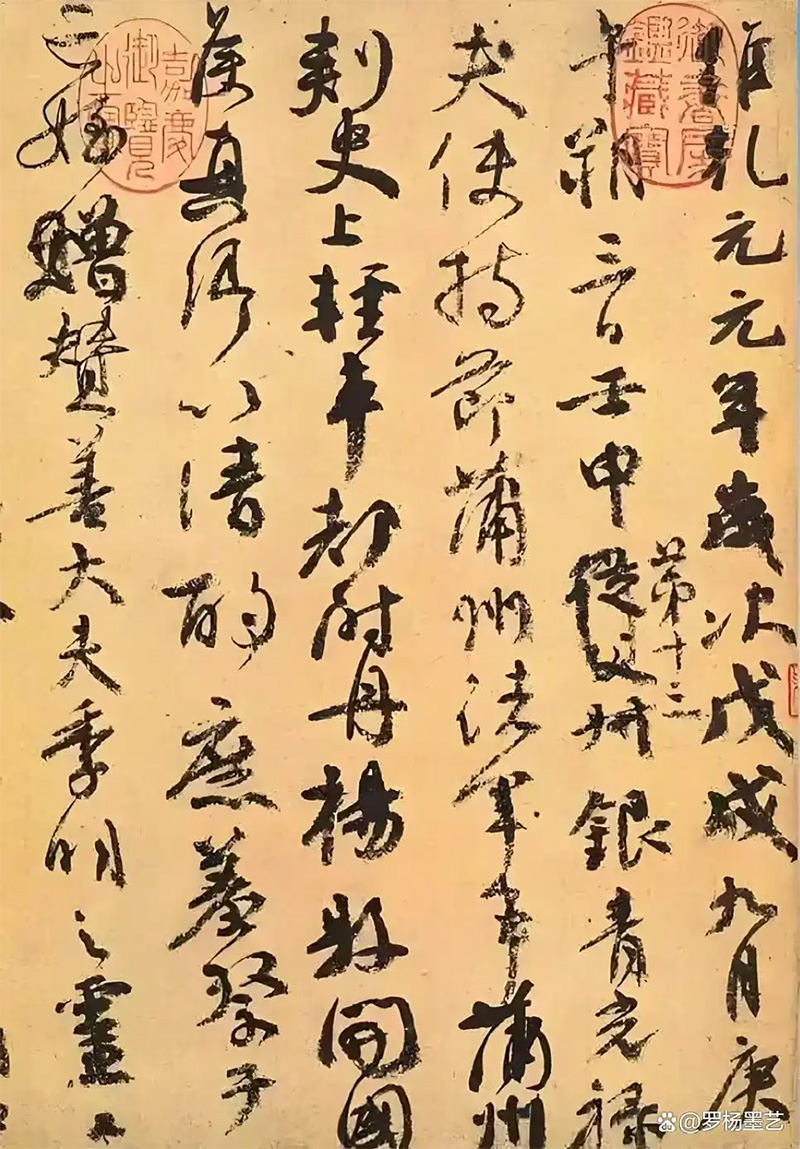 維乾元元年歲次戊戌九月庚
午朔三日壬申第十三從父叔銀青光祿
夫使持節蒲州諸軍事蒲州
刺史上輕車都尉丹楊縣開國
侯真卿以清酌庶羞祭于
亡姪贈贊善大夫季明之靈曰
御書房鑑藏寶
嘉慶御覽之寶
@罗杨墨艺